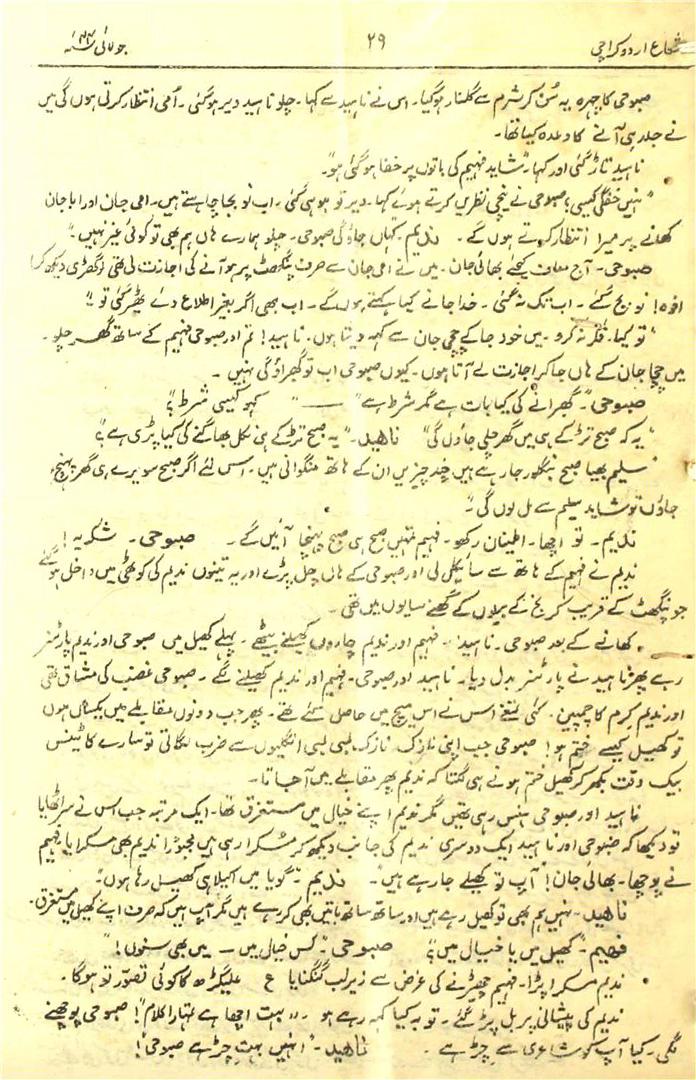 شعاع اردو کراچی ۲۹ جولائی ۴۴ء
صبوحی کا چہرہ یہ سُن کر شرم سے گلنار ہو گیا۔ اس نے ناہید سے کہا۔ چلو ناہید دیر ہو گئی۔ اُمی انتظار کرتی ہوں گی میں
نے جلد ہی آنے کا وعدہ کیا تھا۔
ناہید تاڑ گئی اور کہا "شاید فہیم کی باتوں پر خفا ہو گئی ہو"۔
"نہیں خفگی کیسی؟ صبوحی نے نیچی نظریں کرتے ہوئے کہا۔ دیر تو ہو ہی گئی۔ اب نو بجا چاہتے ہیں۔ امی جان اور ابا جان
کھانے پر میرا انتظار کرتے ہوں گے۔ ندیم۔ کہاں جاؤ گی صبوحی۔ چلو ہمارے ہاں ہم بھی تو کوئی غیر نہیں۔"
صبوحی۔ آج معاف کیجئے بھائی جان۔ میں نے امی جان سے صرف پنگھٹ پر ہو آنے کی اجازت لی تھی تو گھڑی دیکھ کر
افوہ! نو بج گئے۔ اب تک نہ گئی۔ خدا جانے کیا کہتے ہوں گے۔ اب بھی اگر بغیر اطلاع دئے ٹھیر گئی تو"
"تو کیا۔ فکر نہ کرو۔ میں خود جا کے چچی جان سے کہہ دیتا ہوں۔ ناہید! تم اور صبوحی فہیم کے ساتھ گھر چلو۔
میں چچا جان کے ہاں جا کر اجازت لے آتا ہوں۔ کیوں صبوحی اب تو گھبراؤ گی نہیں۔
صبوحی۔ "گھبرانے کی کیا بات ہے مگر شرط ہے" —— " کہو کیسی شرط؟"
"یہ کہ صبح تڑکے ہی میں گھر چلی جاؤں گی" ناہید۔ "یہ صبح تڑکے ہی نکل بھاگنے کی کیا پڑی ہے؟"
"سلیم بھیا صبح بنگلور جا رہے ہیں چند چیزیں ان کے ہاتھ منگوانی ہیں۔ اس لئے اگر صبح سویرے ہی گھر پہنچ
جاؤں تو شاید سلیم سے مل لوں گی"
ندیم۔ تو اچھا۔ اطمینان رکھو۔ فہیم تمہیں صبح ہی صبح پہنچا آئیں گے۔ صبوحی۔ شکریہ!
ندیم نے فہیم کے ہاتھ سے سائیکل لی اور صبوحی کے ہاں چل پڑے اور یہ تینوں ندیم کی کوٹھی میں داخل ہو گئے
جو پنگھٹ کے قریب کے بیلوں کے گھنے سایوں میں تھی۔
کھانے کے بعد صبوحی۔ ناہید۔ فہیم اور ندیم چاروں کھیلنے بیٹھے۔ پہلے کھیل میں صبوحی اور ندیم پارٹنر
رہے پھر ناہید نے پارٹنر بدل دیا۔ ناہید اور صبوحی۔ فہیم اور ندیم کھیلنے لگے۔ صبوحی غضب کی مشاق تھی
اور ندیم کرم کا چمپین۔ کئی تمغے اس نے اس میچ میں حاصل کئے تھے۔ پھر جب دونوں مقابلے میں یکساں ہوں
تو کھیل کیسے ختم ہو! صبوحی جب اپنی نازک نازک لمبی لمبی انگلیوں سے ضرب لگاتی تو سارے کائینس
بیک وقت بکھر کر کھیل ختم ہونے ہی لگتا کہ ندیم پھر مقابلے میں آ جاتا۔
ناہید اور صبوحی ہنس رہی تھیں مگر ندیم اپنے خیال میں مستغرق تھا۔ ایک مرتبہ جب اس نے سر اٹھایا
تو دیکھا کہ صبوحی اور ناہید ایک دوسری ندیم کی جانب دیکھ کر مسکرا رہی ہیں مجبوراً ندیم بھی مسکرایا۔ فہیم
نے پوچھا۔ بھائی جان! آپ تو کھیلے جا رہے ہیں"۔ ندیم۔ "گویا میں اکیلا ہی کھیل رہا ہوں"۔
ناہید۔ نہیں ہم بھی تو کھیل رہے ہیں اور ساتھ ساتھ باتیں بھی کر رہے ہیں مگر آپ ہیں کہ صرف اپنے کھیل میں مستغرق۔
فہیم۔ "کھیل میں یا خیال میں؟" صبوحی۔ "کس خیال میں — میں بھی سنوں!"
ندیم مسکرا پڑا۔ فہیم چھیڑنے کی غرض سے زیر لب گنگنایا ع علیگڑھ کا کوئی تصوّر تو ہو گا۔
ندیم کی پیشانی پر بل پڑ گئے۔ تو یہ کیا کہہ رہے ہو۔ "بہت اچھا ہے تمہارا کلام"! صبوحی پوچھنے
لگی۔ کیا آپ کو شاعری سے چڑ ہے۔ ناہید۔ "انہیں بہت چڑ ہے صبوحی"!